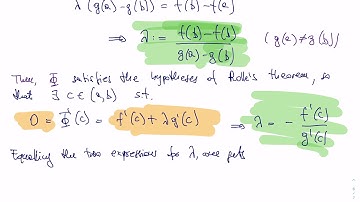 λ (g(a) - g(b)) = f(b) - f(a)
⟹ λ := f(b) - f(b) / g(a) - g(b) ( g(a) ≠ g(b) )
Then, Φ satisfies the hypotheses of Rolle's theorem, so
that ∃ c ∈ (a,b) s.t.
0 = Φ'(c) = f'(c) + λ g'(c) ⟹ λ = - f'(c) / g'(c)
Equalling the two expressions for λ, one gets